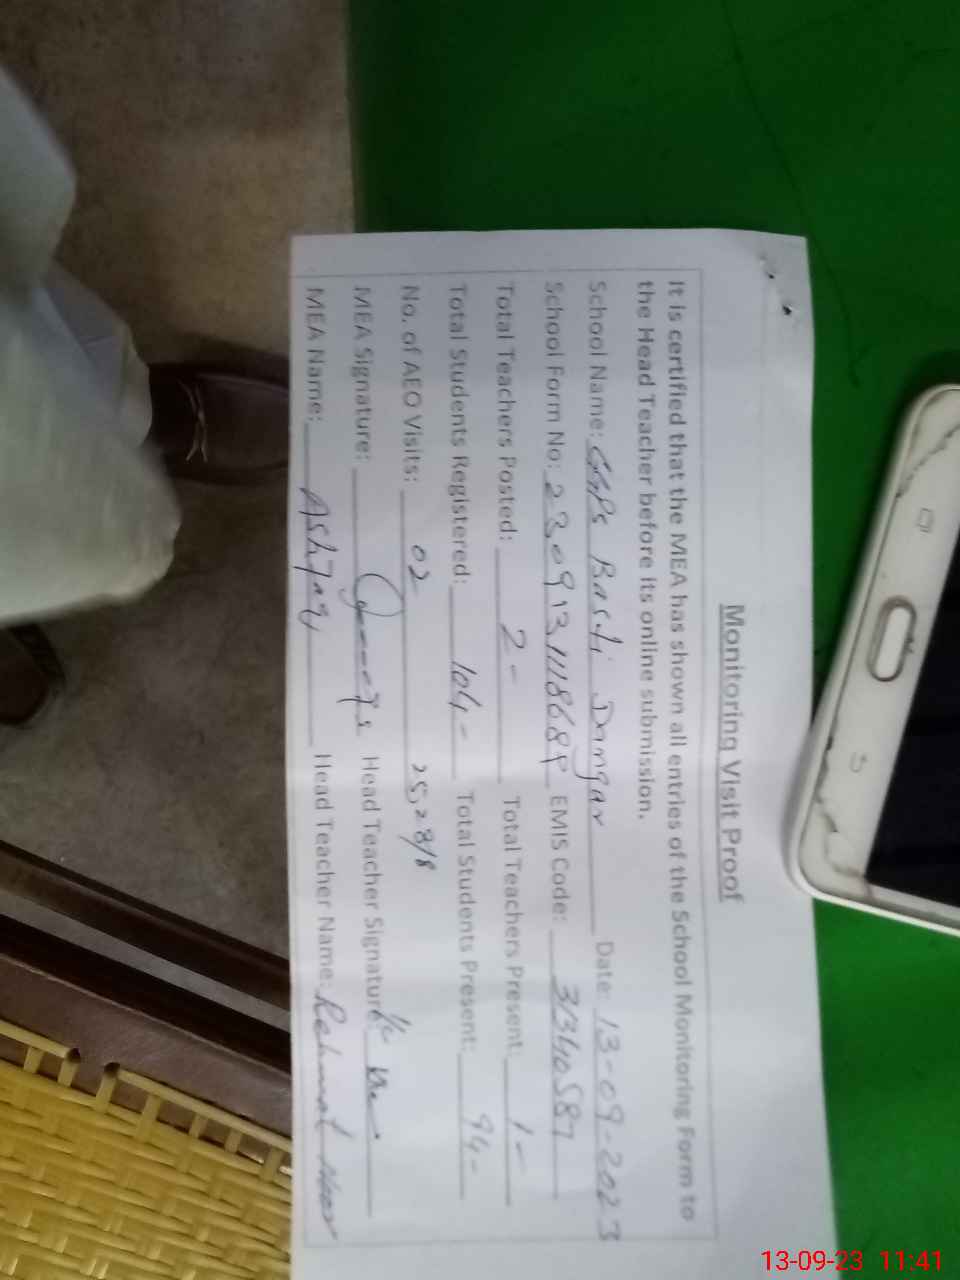 Monitoring Visit Proof
It is certified that the MEA has shown all entries of the School Monitoring Form to
the Head Teacher before its online submission.
School Name: GGPS Basti Dangar Date: 13-09-2023
School Form No: EMIS Code: 31340587
Total Teachers Posted: 2- Total Teachers Present: 1-
Total Students Registered: 104- Total Students Present: 94-
No. of AEO Visits: 02
MEA Signature: Head Teacher Signature:
MEA Name: Ashfaq Head Teacher Name: Rehmat
13-09-23 11:41